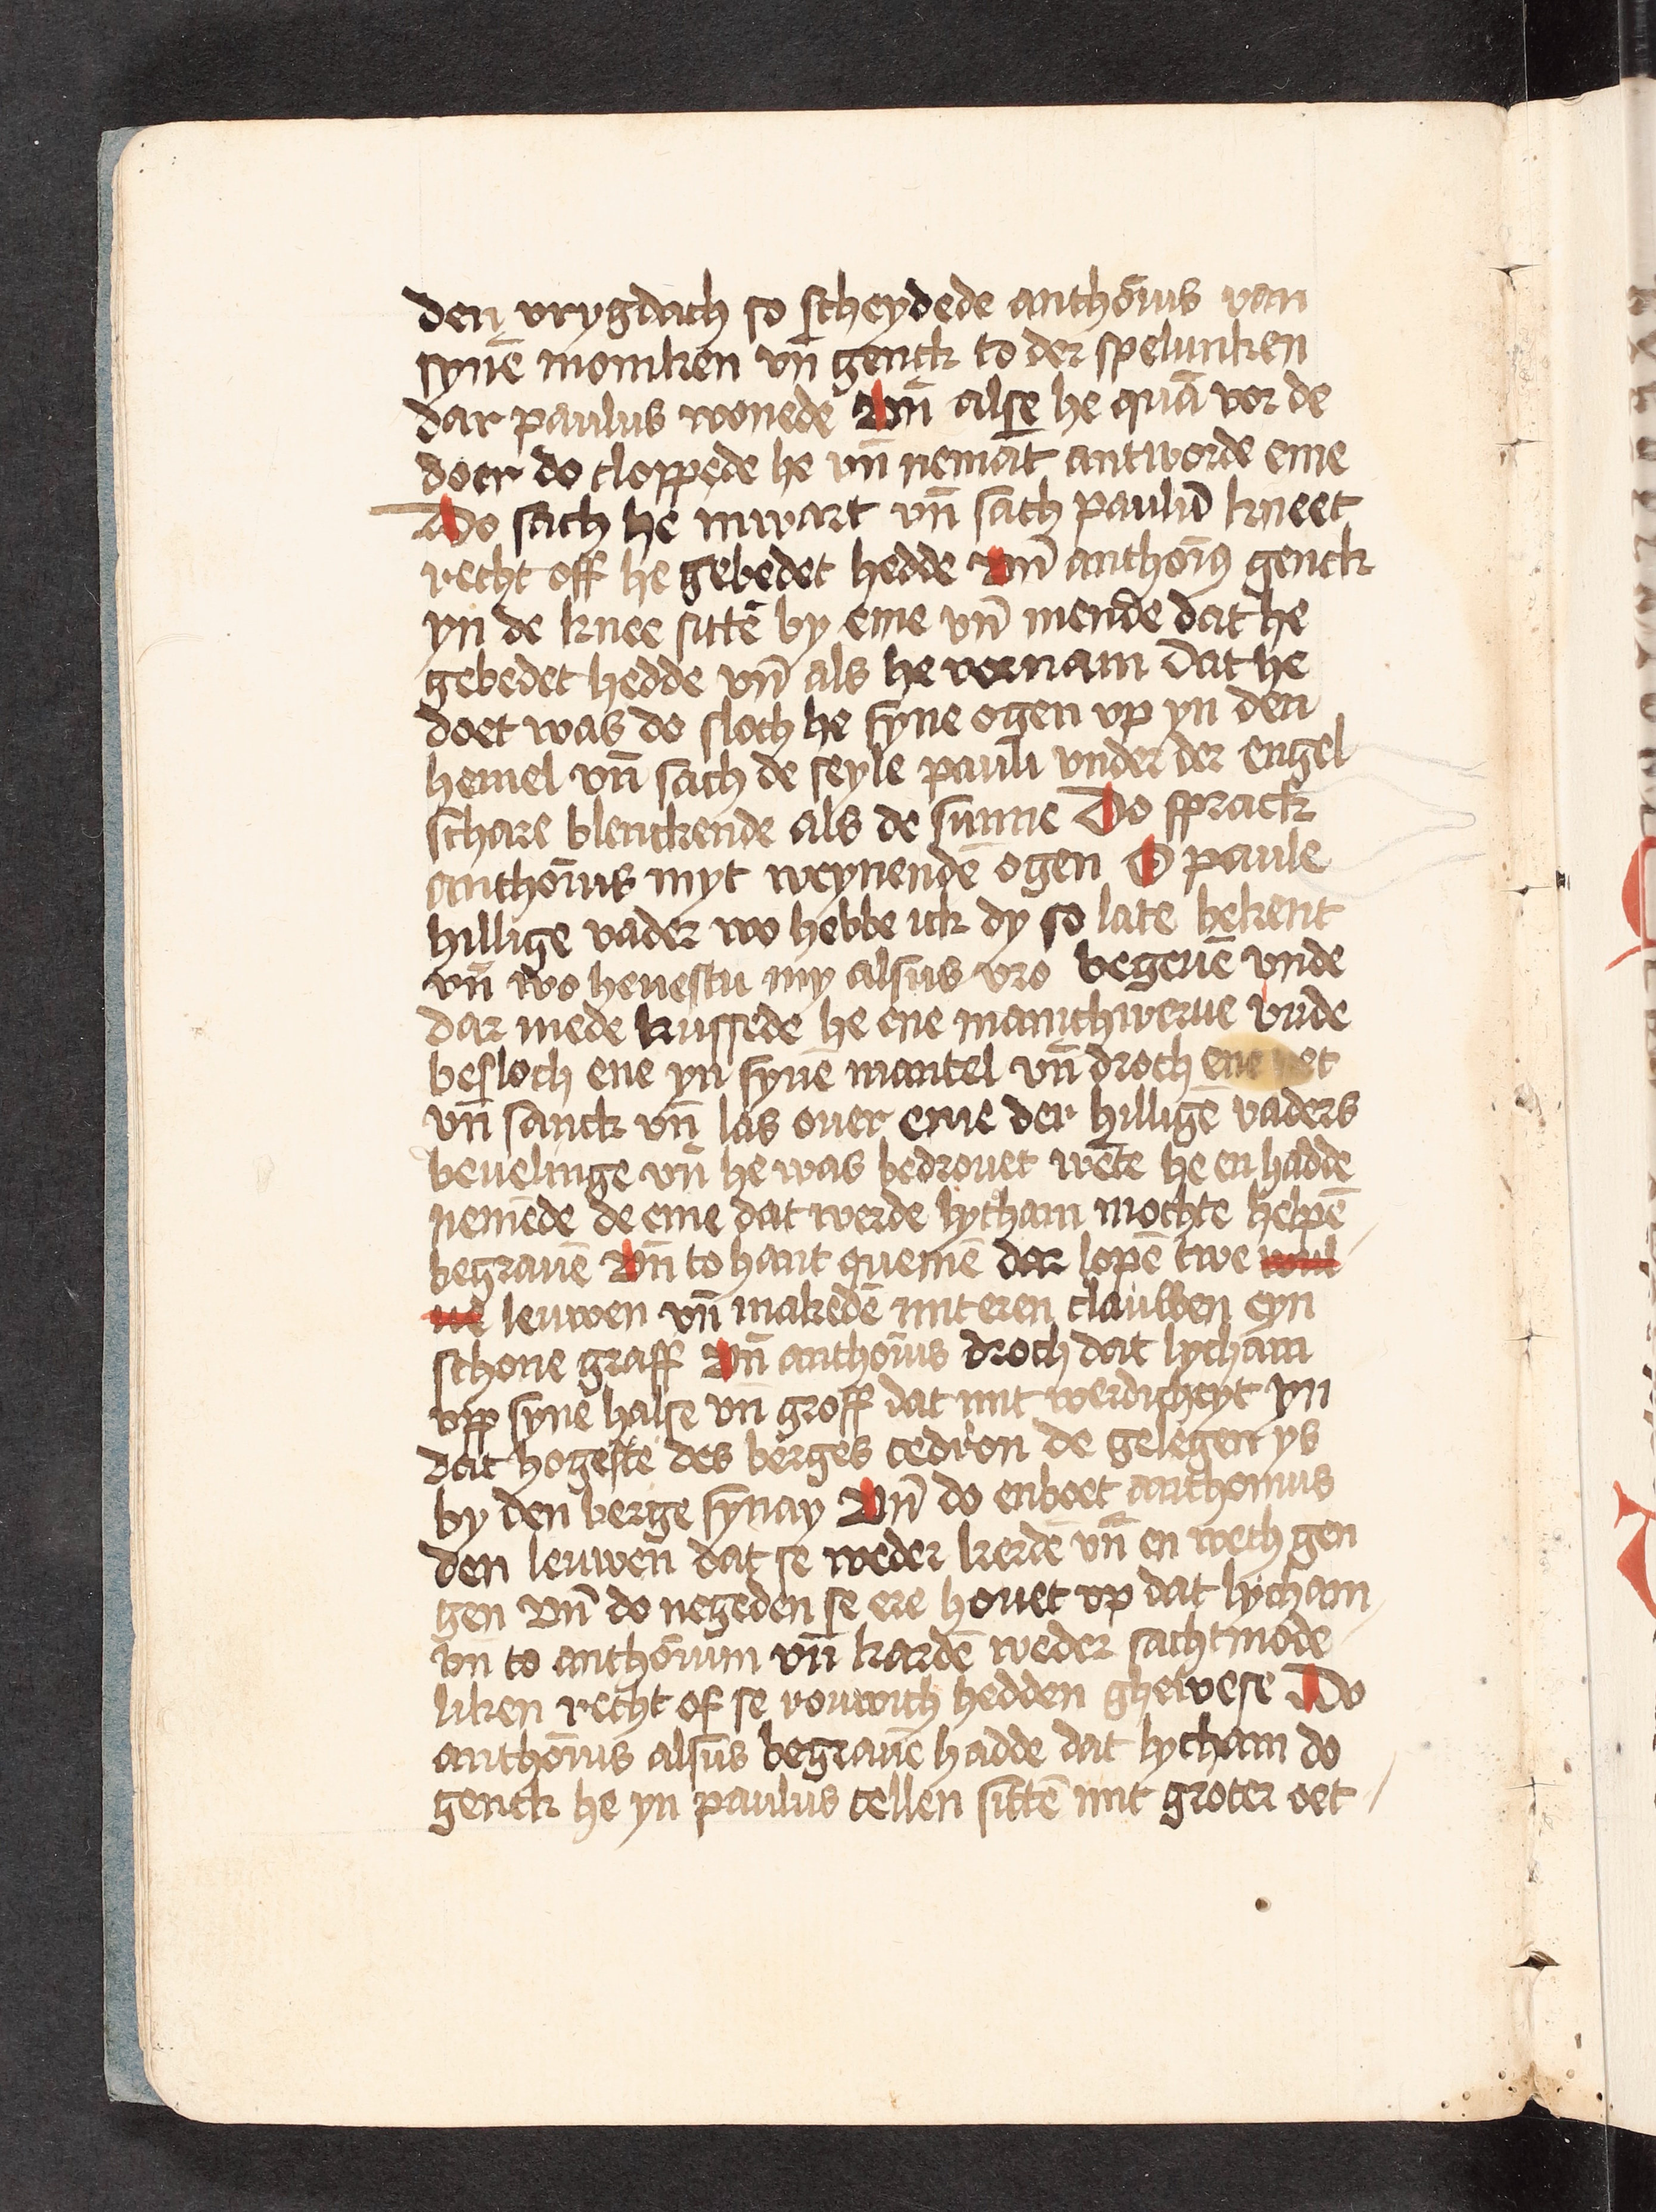 den vrygdach so scheydede anthōius van
synē moniken vn̄ genck to der spelunken
dar paulus wonede Vn̄ alse he quā vor de
doer do cloppede he vn̄ nemāt antworde eme
Do sach he inwart vn̄ sach paulū kneet
recht off he gebedet hedde Vn̄ anthoīꝰ genck
yn de knee sittē by eme vn̄ mende dat he
gebedet hedde vn̄ als he vornam dat he
doet was do sloch he syne ogen vp yn den
hemel vn̄ sach de seyle pauli vnder der engel
schare blenckende als de sunne Do sprack
anthōius myt weynendē ogen O paule
hillige vader wo hebbe ick dy so late bekent
vn̄ wo heuestu my alsus vro begeuē vnde
dar mede kussede he ene manichwerue vnde
besloch ene yn synē mantel vn̄ droch ene
vn̄ sanck vn̄ las ouer eme der hilligē vaders
beuelinge vn̄ he was bedrouet wēte he en hadde
nemēde de eme dat werde lycham mochte helpē
begrauē Vn̄ to hant quemē dar lopē twe wul
ue leuwen vn̄ makedē mit eren clauwen eyn
schone graff Vn̄ anthōius droch dat lycham
vpp synē halse vn̄ groff dat mit werdicheyt yn
dat hogeste des berges cedron de gelegen ys
by den berge synay Vn̄ do enboet anthonius
den leuwen dat se weder kerdē vn̄ en wech gen
gen vn̄ do negeden se ere houet vp dat lycham
vn̄ to anthōium vn̄ kardē weder sachtmode
liken recht of se rouwich hedden ghewese Do
anthōius alsus begrauē hadde dat lycham do
genck he yn paulus cellen sittē mit groter oet